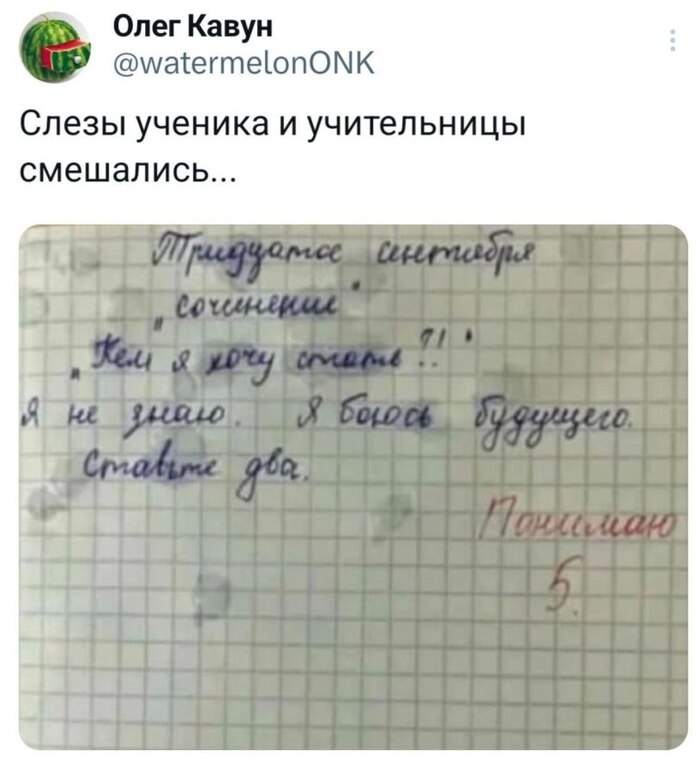 Олег Кавун
@watermelonONK
Слезы ученика и учительницы
смешались...
Тридцатое сентября
„Сочинение"
„Кем я хочу стать?!"
Я не знаю. Я боюсь будущего.
Ставьте два.
Понимаю
5.